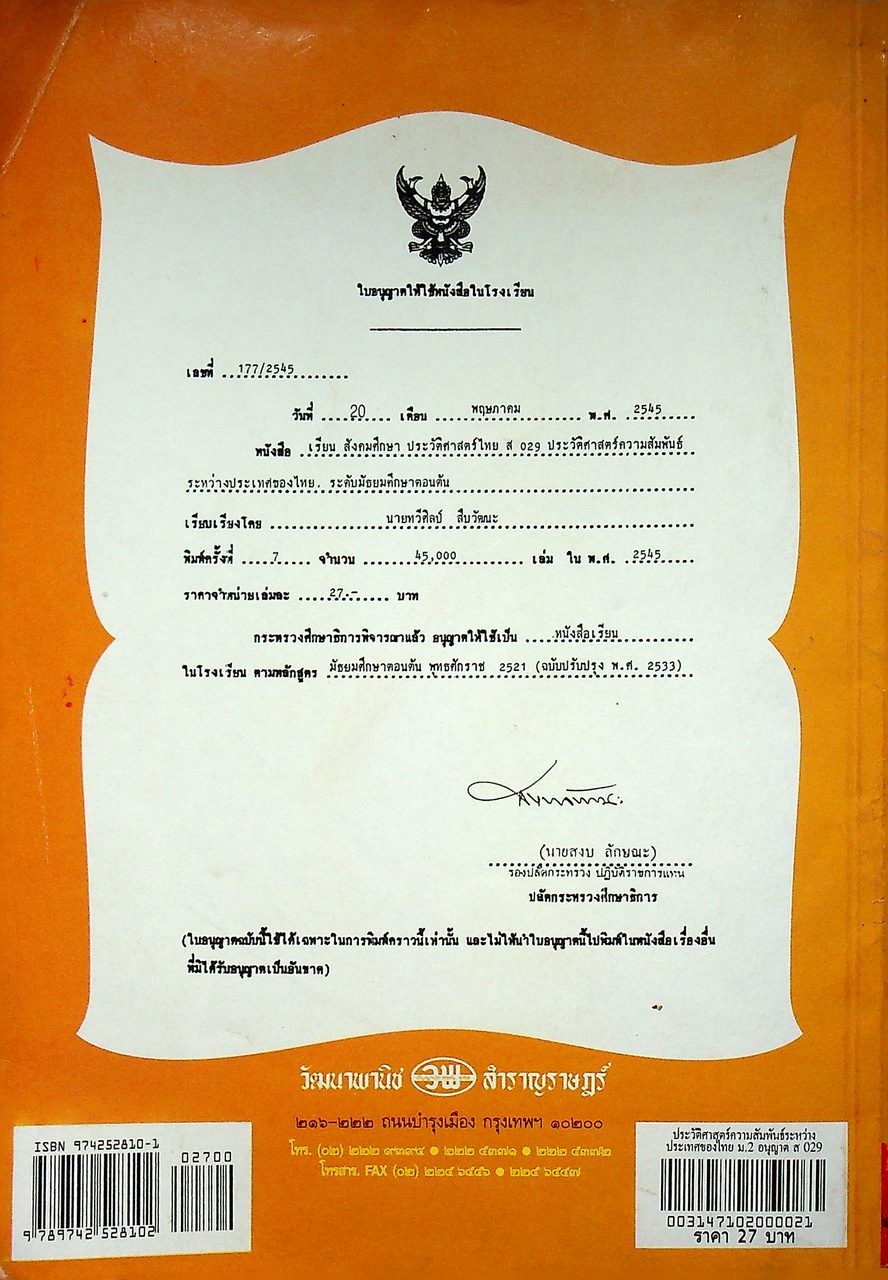 ใบอนุญาตให้ใช้หนังสือในโรงเรียน
เลขที่ 177/2545
วันที่ 20 เดือน พฤษภาคม พ.ศ. 2545
หนังสือ เรียน สังคมศึกษา ประวัติศาสตร์ไทย ส 029 ประวัติศาสตร์ความสัมพันธ์
ระหว่างประเทศของไทย. ระดับมัธยมศึกษาตอนต้น
เรียบเรียงโดย นายทวีศิลป์ สืบวัฒนะ
พิมพ์ครั้งที่ 7 จำนวน 45,000 เล่ม ใน พ.ศ. 2545
ราคาจำหน่ายเล่มละ 27.- บาท
กระทรวงศึกษาธิการพิจารณาแล้ว อนุญาตให้ใช้เป็น หนังสือเรียน
ในโรงเรียน ตามหลักสูตร มัธยมศึกษาตอนต้น พุทธศักราช 2521 (ฉบับปรับปรุง พ.ศ. 2533)
(นายสงบ ลักษณะ)
รองปลัดกระทรวง ปฏิบัติราชการแทน
ปลัดกระทรวงศึกษาธิการ
(ใบอนุญาตฉบับนี้ใช้ได้เฉพาะในการพิมพ์คราวนี้เท่านั้น และไม่ให้นำใบอนุญาตนี้ไปพิมพ์ในหนังสือเรื่องอื่น
ที่มิได้รับอนุญาตเป็นอันขาด)
วัฒนาพานิช วพ สำราญราษฎร์
๒๑๖-๒๒๒ ถนนบำรุงเมือง กรุงเทพฯ ๑๐๒๐๐
โทร. (๐๒) ๒๒๒ ๙๓๙๔ ● ๒๒๒ ๕๓๗๑ ● ๒๒๒ ๕๓๗๒
โทรสาร. FAX (๐๒) ๒๒๕ ๖๕๕๖ ● ๒๒๕ ๖๕๕๗
ISBN 974252810-1
02700
9 789742 528102
ประวัติศาสตร์ความสัมพันธ์ระหว่าง
ประเทศของไทย ม.2 อนุญาต ส 029
003147102000021
ราคา 27 บาท